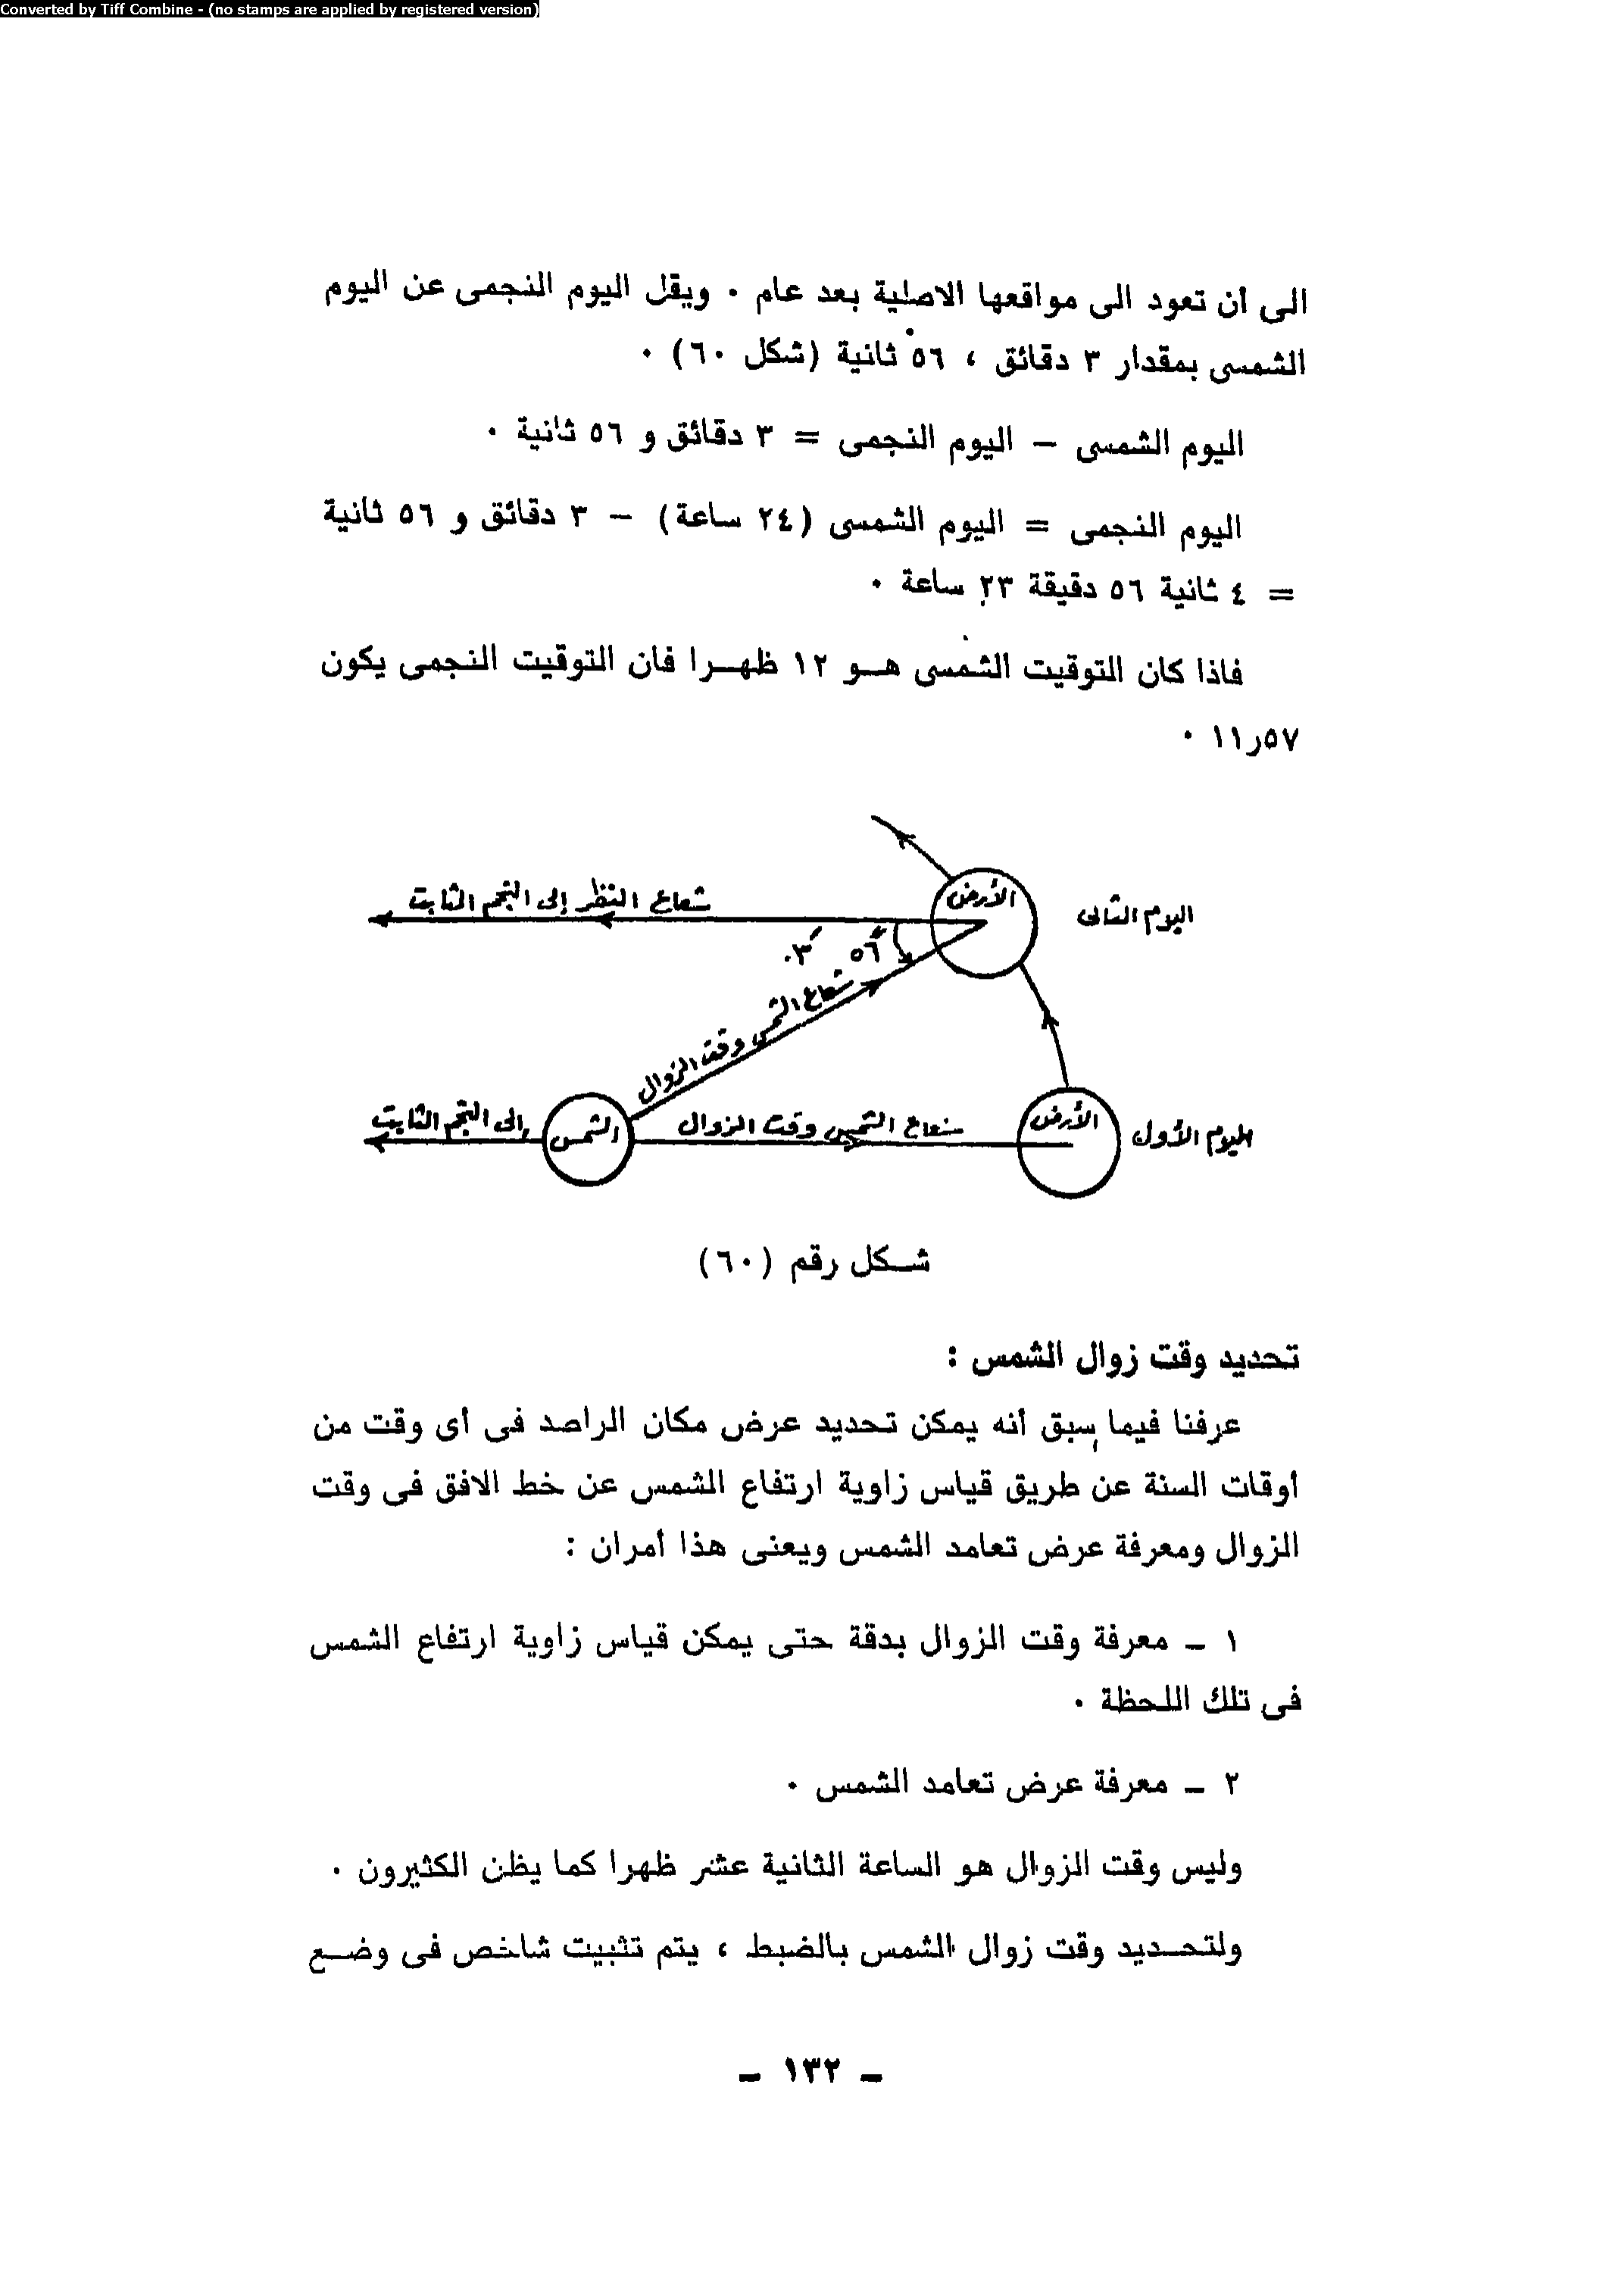 Converted by Tiff Combine - (no stamps are applied by registered version)
الى أن تعود الى مواقعها الاصلية بعد عام ٠ ويقل اليوم النجمى عن اليوم
الشمسى بمقدار ٣ دقائق ، ٥٦ ثانية (شكل ٦٠) ٠
اليوم الشمسى – اليوم النجمى = ٣ دقائق و ٥٦ ثانية ٠
اليوم النجمى = اليوم الشمسى (٢٤ ساعة) – ٣ دقائق و ٥٦ ثانية
= ٤ ثانية ٥٦ دقيقة ٢٣ ساعة ٠
فاذا كان التوقيت الشمسى هو ١٢ ظهرا فان التوقيت النجمى يكون
٥٧ر١١ ٠
شعاع النظر إلى النجم الثابت
الأرض
اليوم الثانى
٥٦ً ٠٣َ
شعاع الشمس وقت الزوال
إلى النجم الثابت
الشمس
شعاع الشمس وقت الزوال
الأرض
اليوم الأول
شكل رقم (٦٠)
تحديد وقت زوال الشمس :
عرفنا فيما سبق أنه يمكن تحديد عرض مكان الراصد فى أى وقت من
أوقات السنة عن طريق قياس زاوية ارتفاع الشمس عن خط الافق فى وقت
الزوال ومعرفة عرض تعامد الشمس ويعنى هذا أمران :
١ – معرفة وقت الزوال بدقة حتى يمكن قياس زاوية ارتفاع الشمس
فى تلك اللحظة ٠
٢ – معرفة عرض تعامد الشمس ٠
وليس وقت الزوال هو الساعة الثانية عشر ظهرا كما يظن الكثيرون ٠
ولتحديد وقت زوال الشمس بالضبط ، يتم تثبيت شاخص فى وضع
– ١٣٢ –